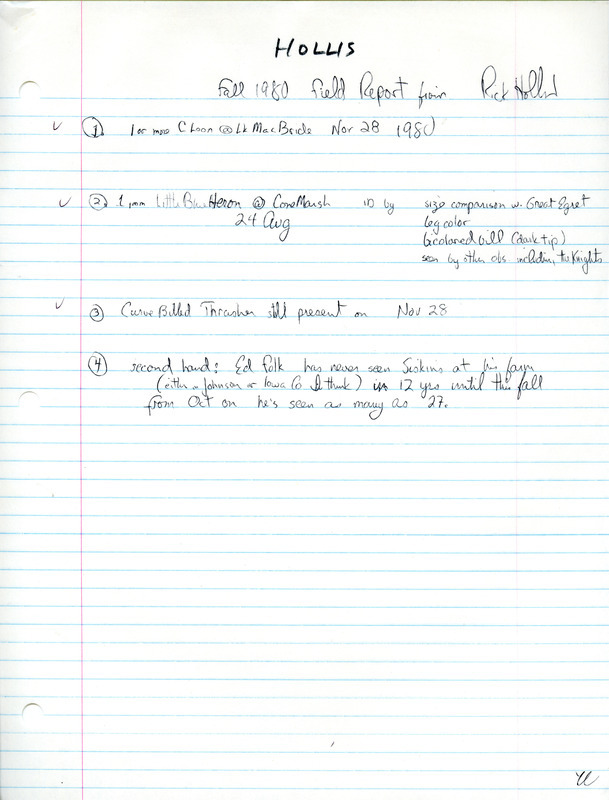 HOLLIS
Fall 1980 Field Report from Rick Hollis
✓ ① 1 or more C Loon @ Lk MacBride Nov 28 1980
✓ ② 1 imm Little Blue Heron @ Cone Marsh ID by size comparison w. Great Egret
24 Aug leg color
bicolored bill (dark tip)
seen by other obs including the Knights
✓ ③ Curve Billed Thrasher still present on Nov 28
④ second hand: Ed Folk has never seen Siskins at his farm
(either in Johnson or Iowa Co I think) in 12 yrs until this fall
from Oct on he's seen as many as 27.